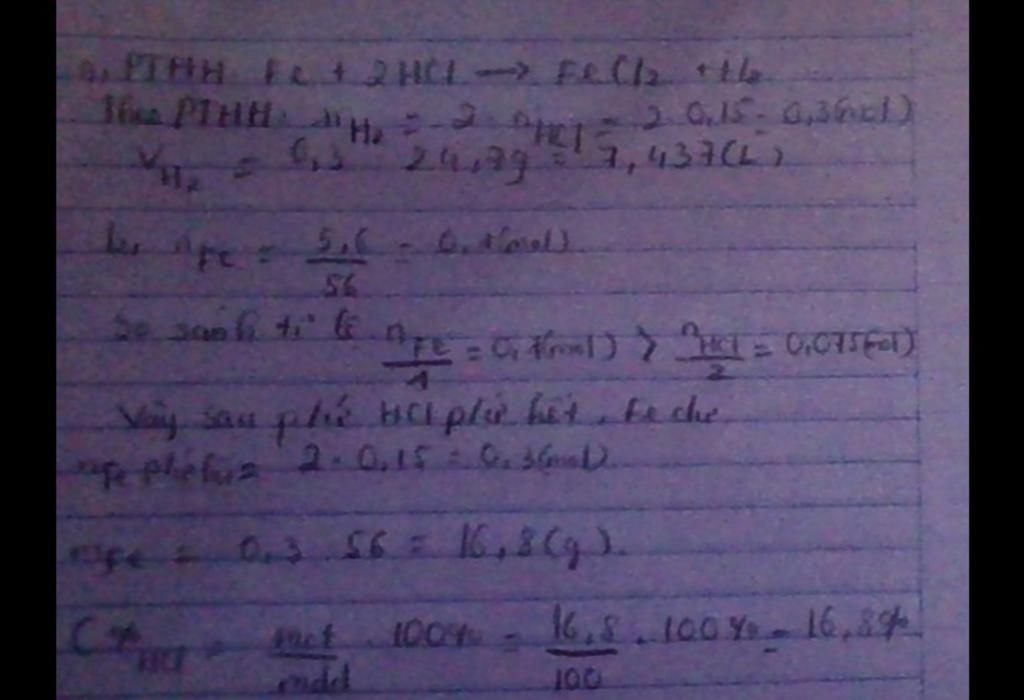 a, PTHH Fe + 2HCl → FeCl₂ + H₂
Theo PTHH: n H₂ = 2 . n HCl = 2 . 0,15 = 0,3(mol)
V H₂ = 0,3 . 24,79 = 7,437(L)
b, n Fe = 5,6/56 = 0,1(mol)
So sánh tỉ lệ n Fe/1 = 0,1(mol) > n HCl/2 = 0,075(mol)
Vậy sau phứ HCl phứ hết, Fe dư
n Fe phứ = 2 . 0,15 = 0,3(mol)
m Fe = 0,3 . 56 = 16,8(g).
C% HCl = mct/mdd . 100% = 16,8/100 . 100% = 16,8%